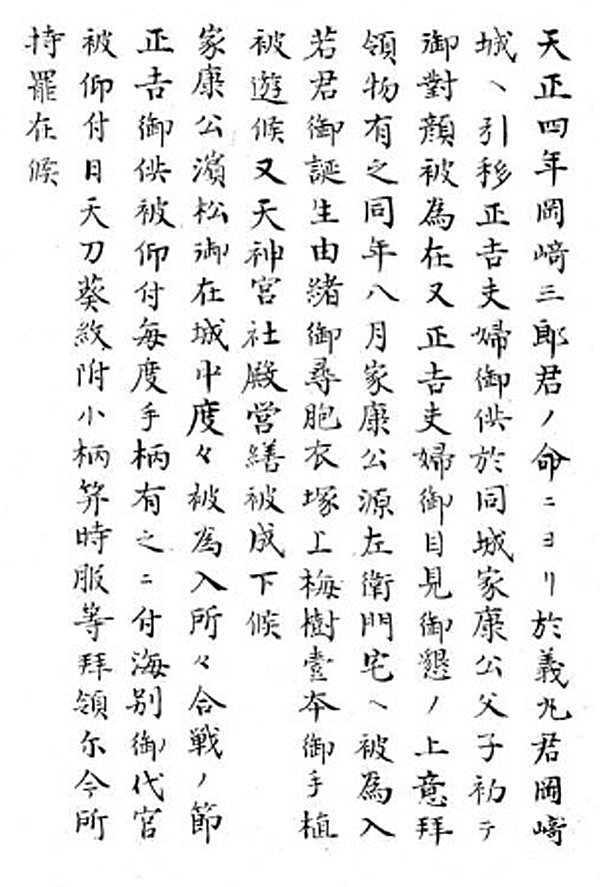 天正四年岡﨑三郎君ノ命ニヨリ於義丸君岡﨑
城ヘ引移正吉夫婦御供於同城家康公父子初テ
御對顔被為在又正吉夫婦御目見御懇ノ上意拝
領物有之同年八月家康公源左衛門宅ヘ被為入
若君御誕生由緒御尋胞衣塚上梅樹壹夲御手植
被遊候又天神宮社殿営繕被成下候
家康公濱松御在城中度々被為入所々合戦ノ節
正吉御供被仰付毎度手柄有之ニ付海別御代官
被仰付日天刀葵紋附小柄笄時服等拝領尓今所
持罷在候